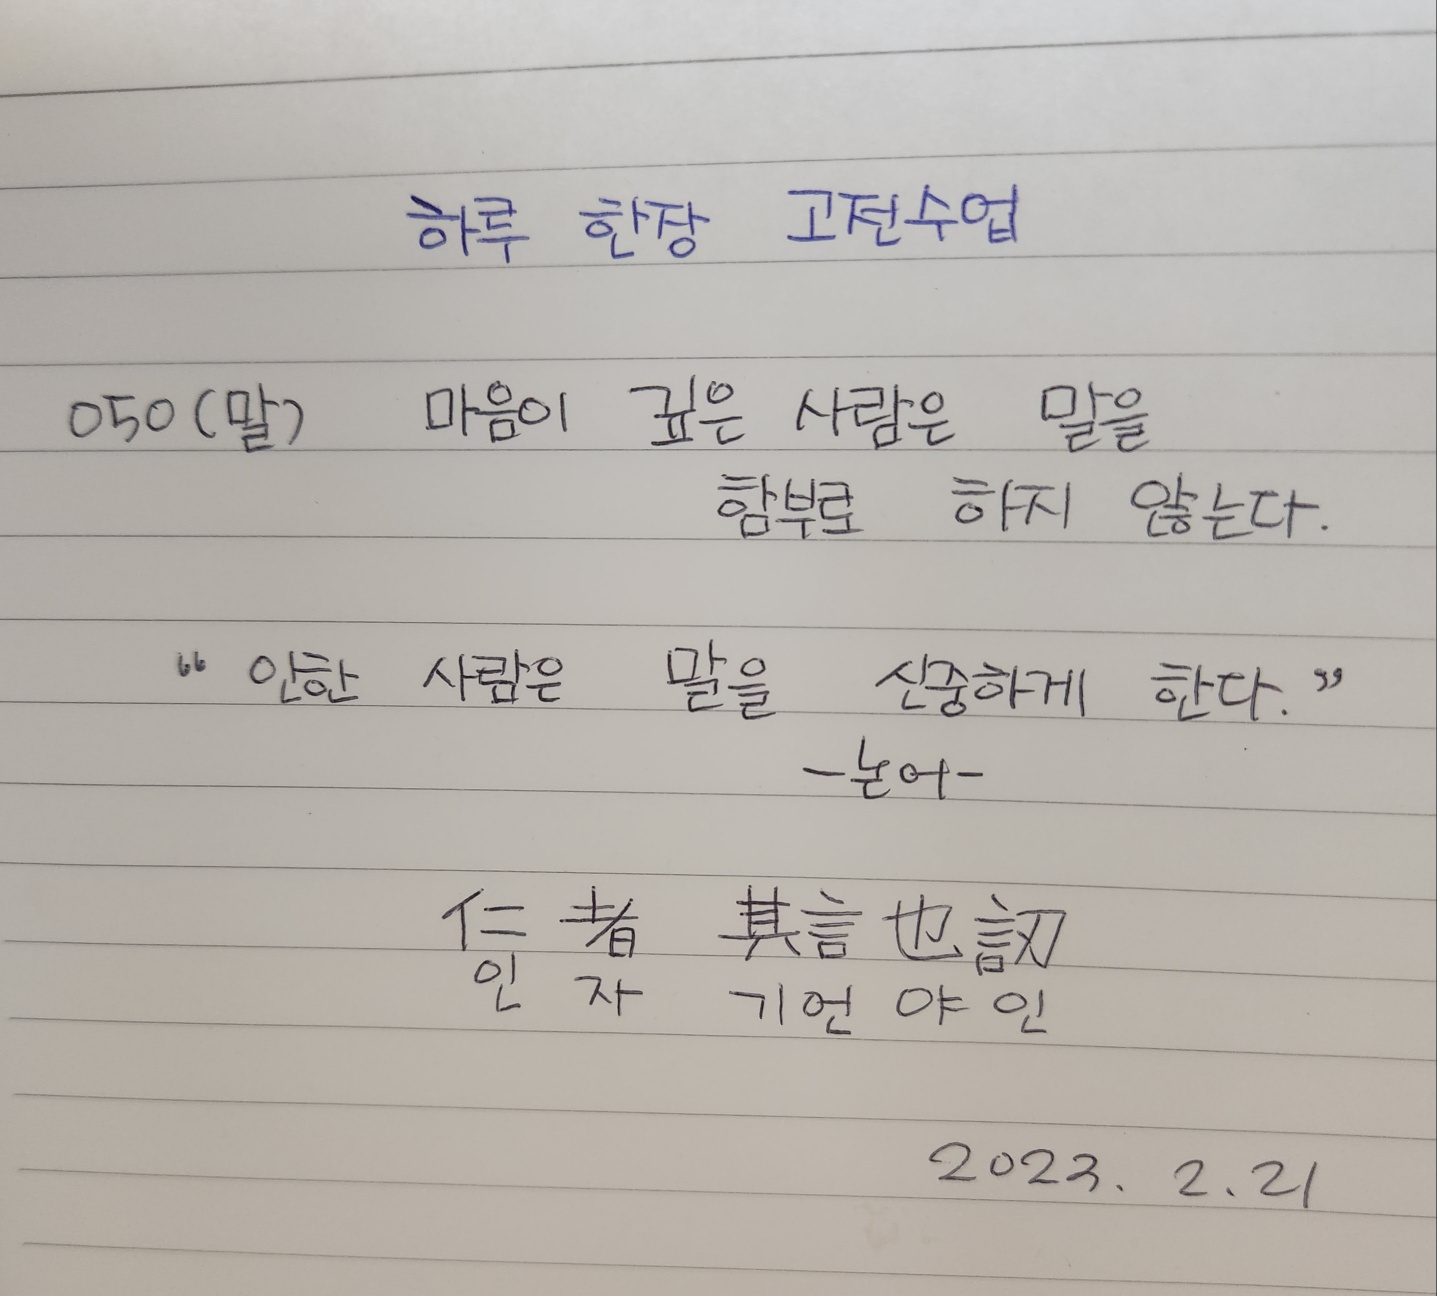 하루 한장 고전수업
050(말) 마음이 깊은 사람은 말을
함부로 하지 않는다.
“인한 사람은 말을 신중하게 한다.”
-논어-
仁者 其言也訒
인 자 기언 야 인
2023. 2.21